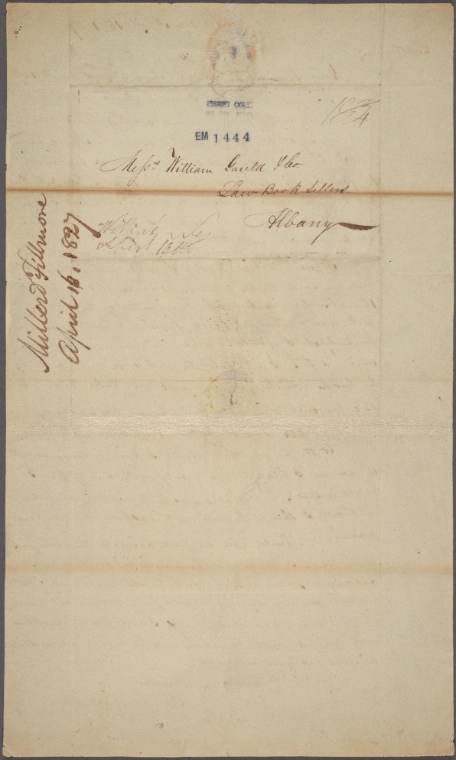 EMMET COLL
EM 1444
18¾
Messrs William Gould & Co
Law Book Sellers
Albany
Millerd Fillmore
April 16. 1827